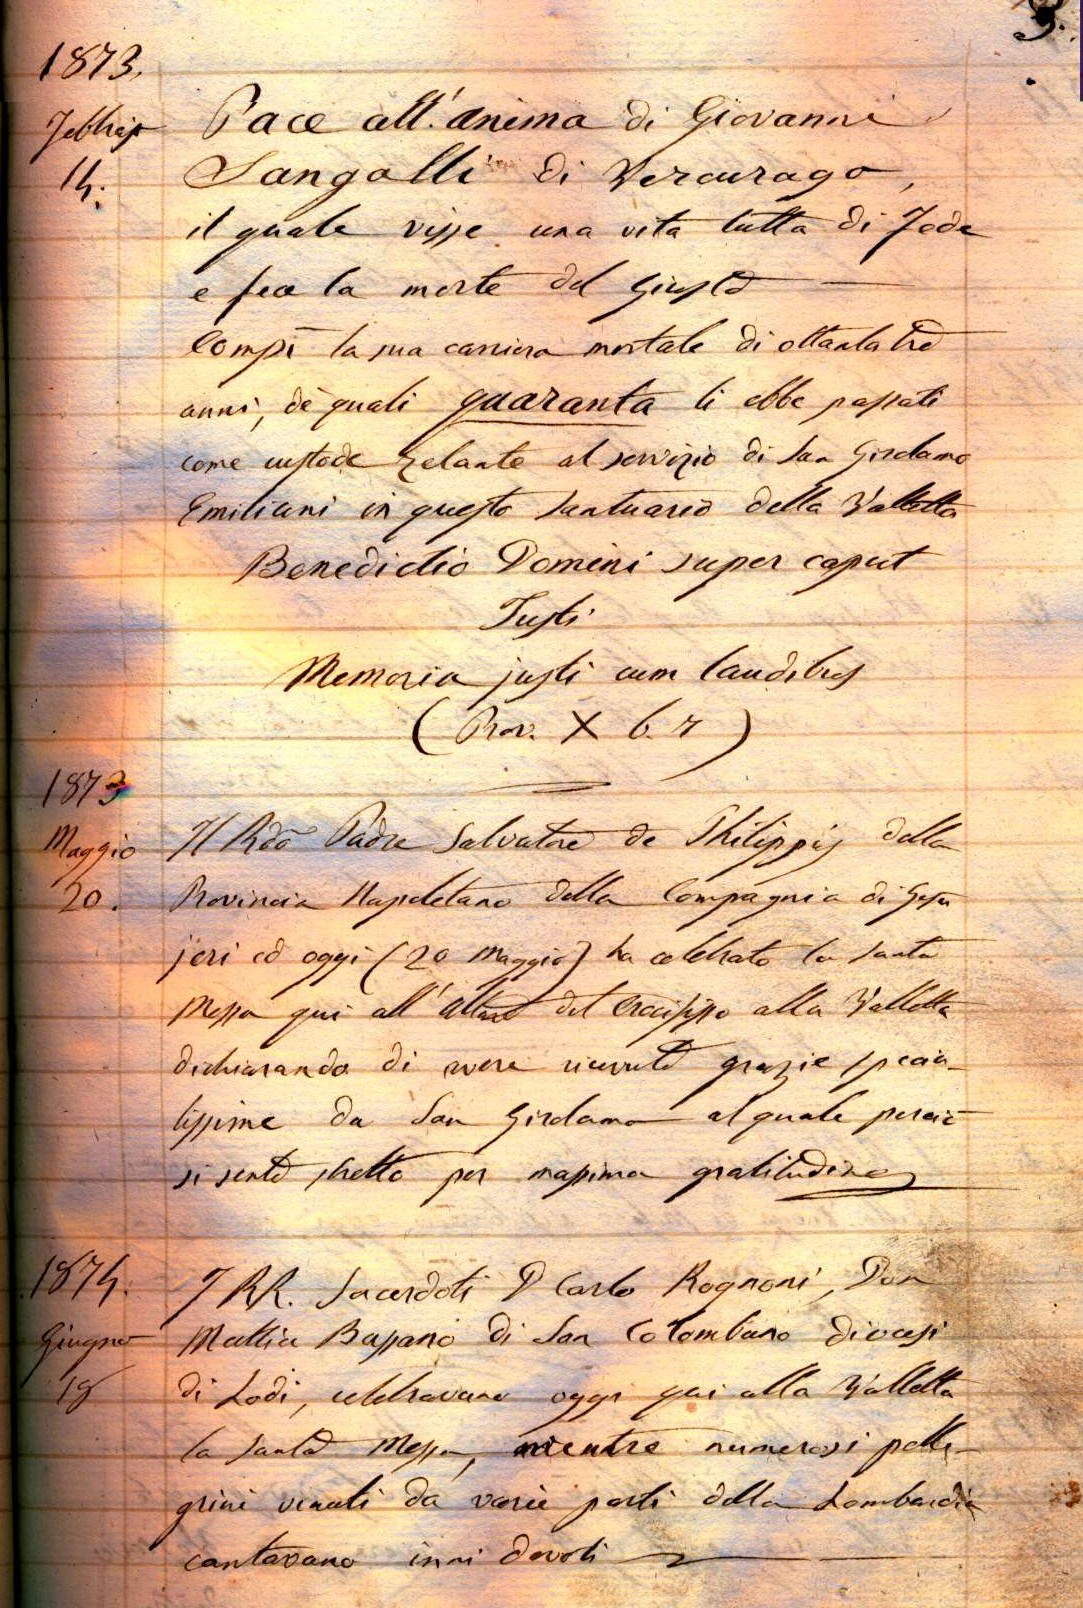 3.
1873.
Febbrajo
14.
Pace all'anima di Giovanni
Sangalli di Vercurago,
il quale visse una vita tutta di Fede
e fece la morte del Giusto
Compì la sua carriera mortale di ottantatre
anni, de' quali quaranta li ebbe passati
come custode zelante al servizio di San Girolamo
Emiliani in questo Santuario della Valletta
Benedictio Domini super caput
Justi
Memoria justi cum laudibus
(Prov. X 6. 7)
1873
Maggio
20.
Il Rdo Padre Salvatore de Philippis della
Provincia Napoletana della Compagnia di Gesu
jeri ed oggi (20 Maggio) ha celebrato la Santa
Messa qui all'altare del Crocifisso alla Valletta
dichiarando di avere ricevuto grazie specia-
lissime da San Girolamo al quale perciò
si sente stretto per massima gratitudine
1874.
Giugno
18
I RR. Sacerdoti D Carlo Rognoni, Don
Mattia Bassano di San Colombano diocesi
di Lodi, celebravano oggi qui alla Valletta
la Santa Messa, mentre numerosi pelle-
grini venuti da varie parti della Lombardia
cantavano inni devoti